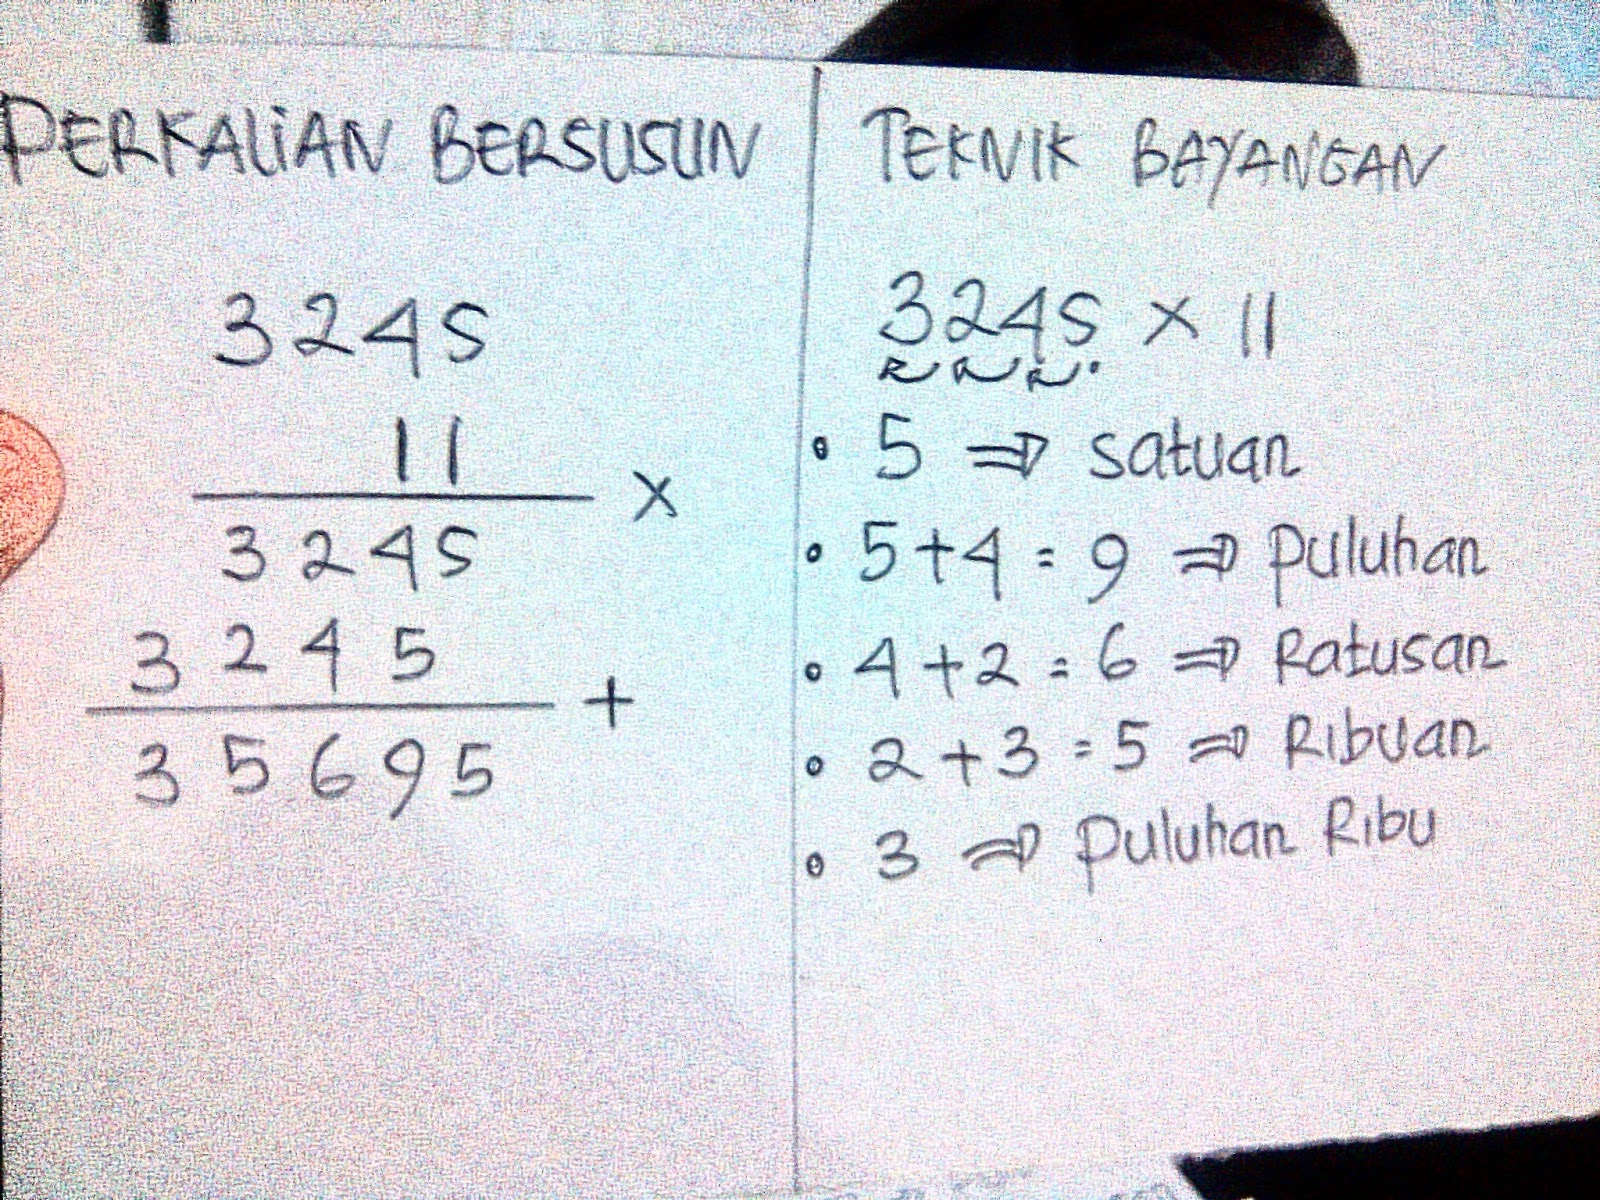 PERKALIAN BERSUSUN
3245
11
x
3245
3245
+
35695
TEKNIK BAYANGAN
3245 x 11
• 5 ⇒ satuan
• 5+4 = 9 ⇒ puluhan
• 4+2 = 6 ⇒ Ratusan
• 2+3 = 5 ⇒ Ribuan
• 3 ⇒ puluhan Ribu